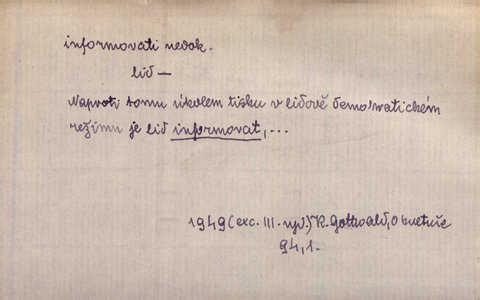 informovati nedok.
lid —
Naproti tomu úkolem tisku v lidově demokratickém
režimu je lid informovat, ...
1949 (exc. III. vyd.) K. Gottwald, O kultuře
94, 1.